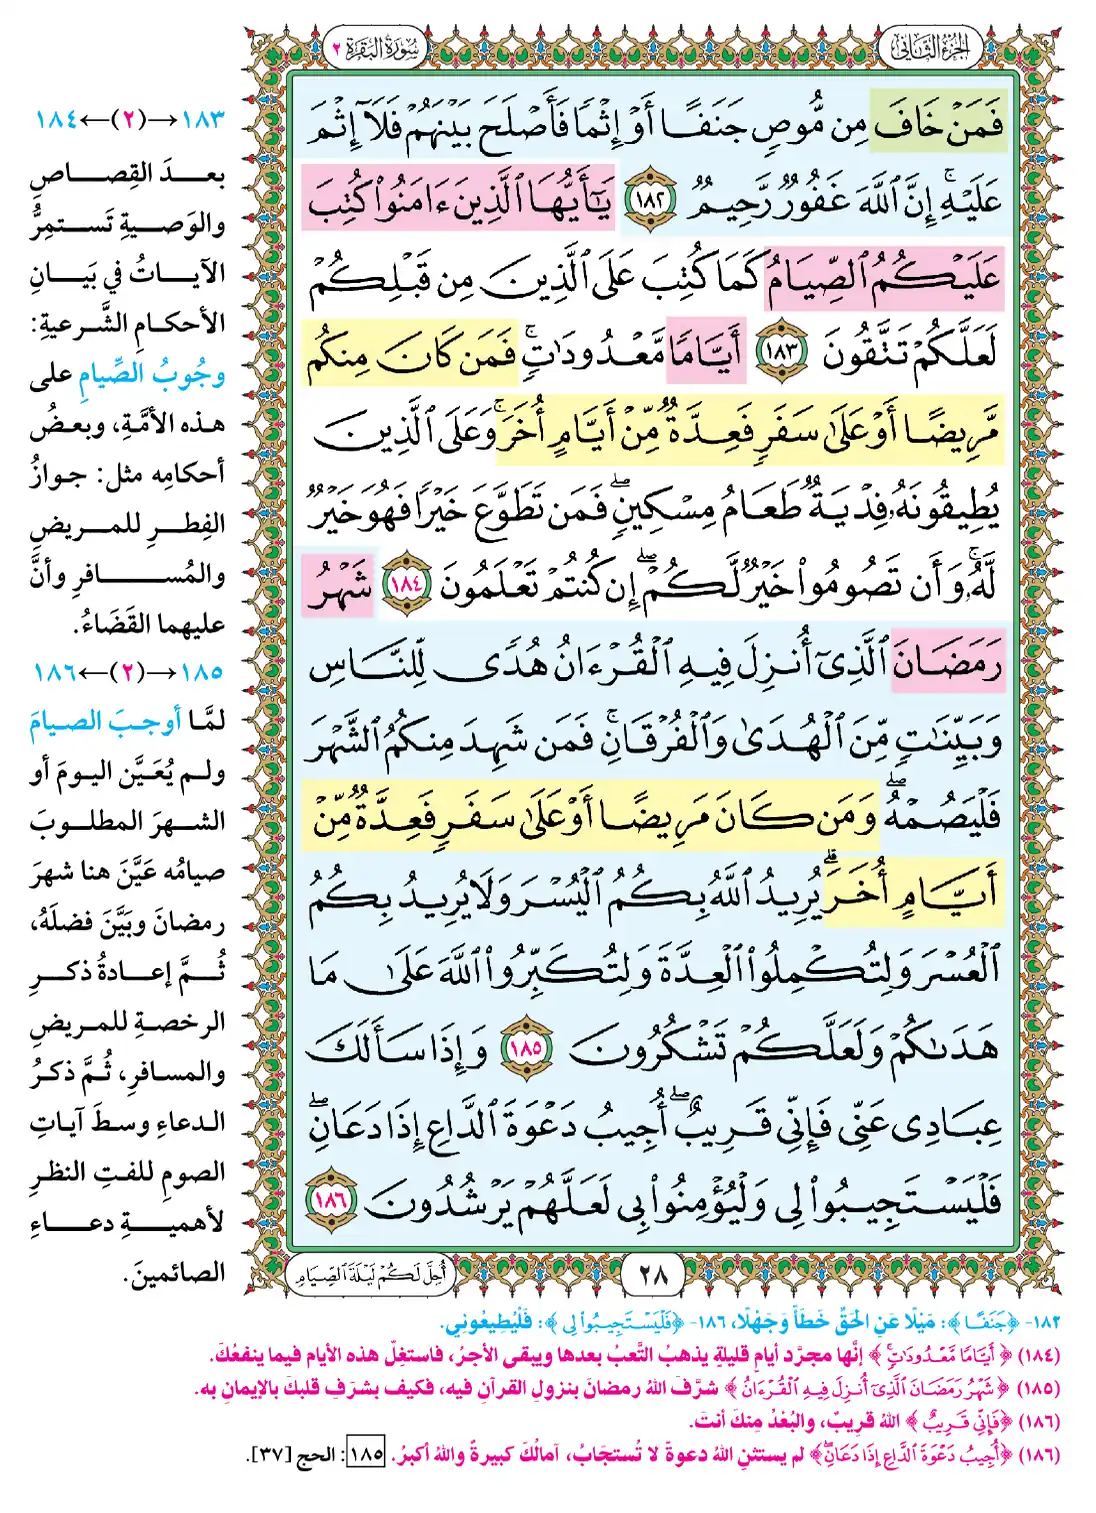 الجزء الثاني
سورة البقرة ٢
فَمَنْ خَافَ مِن مُّوصٍ جَنَفًا أَوْ إِثْمًا فَأَصْلَحَ بَيْنَهُمْ فَلَآ إِثْمَ
عَلَيْهِ ۚ إِنَّ ٱللَّهَ غَفُورٌ رَّحِيمٌ ١٨٢ يَٰٓأَيُّهَا ٱلَّذِينَ ءَامَنُوا۟ كُتِبَ
عَلَيْكُمُ ٱلصِّيَامُ كَمَا كُتِبَ عَلَى ٱلَّذِينَ مِن قَبْلِكُمْ
لَعَلَّكُمْ تَتَّقُونَ ١٨٣ أَيَّامًا مَّعْدُودَٰتٍ ۚ فَمَن كَانَ مِنكُم
مَّرِيضًا أَوْ عَلَىٰ سَفَرٍ فَعِدَّةٌ مِّنْ أَيَّامٍ أُخَرَ ۚ وَعَلَى ٱلَّذِينَ
يُطِيقُونَهُۥ فِدْيَةٌ طَعَامُ مِسْكِينٍ ۖ فَمَن تَطَوَّعَ خَيْرًا فَهُوَ خَيْرٌ
لَّهُۥ ۚ وَأَن تَصُومُوا۟ خَيْرٌ لَّكُمْ ۖ إِن كُنتُمْ تَعْلَمُونَ ١٨٤ شَهْرُ
رَمَضَانَ ٱلَّذِىٓ أُنزِلَ فِيهِ ٱلْقُرْءَانُ هُدًى لِّلنَّاسِ
وَبَيِّنَٰتٍ مِّنَ ٱلْهُدَىٰ وَٱلْفُرْقَانِ ۚ فَمَن شَهِدَ مِنكُمُ ٱلشَّهْرَ
فَلْيَصُمْهُ ۖ وَمَن كَانَ مَرِيضًا أَوْ عَلَىٰ سَفَرٍ فَعِدَّةٌ مِّنْ
أَيَّامٍ أُخَرَ ۗ يُرِيدُ ٱللَّهُ بِكُمُ ٱلْيُسْرَ وَلَا يُرِيدُ بِكُمُ
ٱلْعُسْرَ وَلِتُكْمِلُوا۟ ٱلْعِدَّةَ وَلِتُكَبِّرُوا۟ ٱللَّهَ عَلَىٰ مَا
هَدَىٰكُمْ وَلَعَلَّكُمْ تَشْكُرُونَ ١٨٥ وَإِذَا سَأَلَكَ
عِبَادِى عَنِّى فَإِنِّى قَرِيبٌ ۖ أُجِيبُ دَعْوَةَ ٱلدَّاعِ إِذَا دَعَانِ ۖ
فَلْيَسْتَجِيبُوا۟ لِى وَلْيُؤْمِنُوا۟ بِى لَعَلَّهُمْ يَرْشُدُونَ ١٨٦
٢٨
أُحِلَّ لَكُمْ لَيْلَةَ ٱلصِّيَامِ
١٨٣→(٢)←١٨٤
بعدَ القِصاصِ
والوَصيةِ تَستمِرُّ
الآياتُ في بَيانِ
الأحكامِ الشَّرعيةِ:
وجُوبُ الصِّيامِ على
هذه الأمَّةِ، وبعضُ
أحكامِه مثل: جوازُ
الفِطرِ للمريضِ
والمُسافرِ وأنَّ
عليهما القَضَاءُ.
١٨٥→(٢)←١٨٦
لمَّا أوجبَ الصيامَ
ولم يُعَيَّن اليومَ أو
الشهرَ المطلوبَ
صيامُه عَيَّنَ هنا شهرَ
رمضانَ وبَيَّنَ فضلَهُ،
ثُمَّ إعادةُ ذكرِ
الرخصةِ للمريضِ
والمسافرِ، ثُمَّ ذكرُ
الدعاءِ وسطَ آياتِ
الصومِ للفتِ النظرِ
لأهميةِ دعاءِ
الصائمينَ.
١٨٢- ﴿جَنَفًا﴾: مَيْلًا عَنِ الحَقِّ خَطَأً وَجَهْلًا، ١٨٦- ﴿فَلْيَسْتَجِيبُوا۟ لِى﴾: فَلْيُطِيعُونِي.
(١٨٤) ﴿أَيَّامًا مَّعْدُودَٰتٍ ۚ﴾ إنَّها مجرَّد أيامٍ قليلةٍ يذهبُ التَّعبُ بعدها ويبقى الأجرُ، فاستغِلّ هذه الأيام فيما ينفعُكَ.
(١٨٥) ﴿شَهْرُ رَمَضَانَ ٱلَّذِىٓ أُنزِلَ فِيهِ ٱلْقُرْءَانُ﴾ شرَّفَ اللهُ رمضانَ بنزولِ القرآنِ فيه، فكيف بشرَفِ قلبكَ بالإيمانِ به.
(١٨٦) ﴿فَإِنِّى قَرِيبٌ﴾ اللهُ قريبٌ، والبُعْدُ مِنكَ أنتَ.
(١٨٦) ﴿أُجِيبُ دَعْوَةَ ٱلدَّاعِ إِذَا دَعَانِ ۖ﴾ لم يستثنِ اللهُ دعوةً لا تُستجَابُ، آمالُكَ كبيرةٌ واللهُ أكبرُ. ١٨٥: الحج [٣٧].